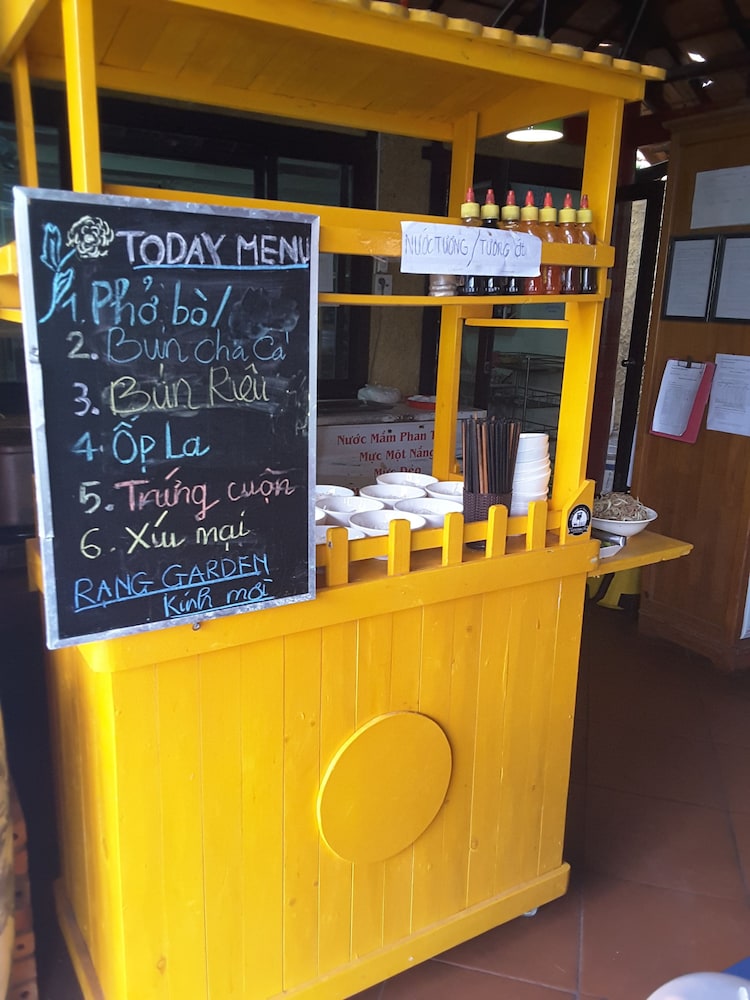 TODAY MENU
1. Phở bò/
2. Bún chả Cá
3. Bún Riêu
4 Ốp La
5. Trứng cuộn
6. Xíu mại
RẠNG GARDEN
Kính mời
NƯỚC TƯƠNG / TƯƠNG ỚT
Nước Mắm Phan
Mực Một Nắng
Mực Dẻo